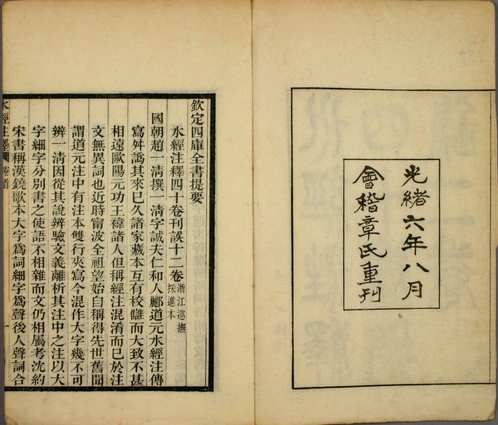 光緒六年八月
會稽章氏重刊
欽定四庫全書提要
水經注釋四十卷刊誤十二卷浙江巡撫採進本
國朝趙一清撰一清字誠夫仁和人酈道元水經注傳
寫舛譌其來已久諸家藏本互有校讎而大致不甚
相遠歐陽元功王禕諸人但稱經注混淆而已於注
文無異詞也近時甯波全祖望始自稱得先世舊聞
謂道元注中有注本雙行夾寫今混作大字幾不可
辨一清因從其說辨驗文義離析其注中之注以大
字細字分別書之使語不相雜而文仍相屬考沈約
宋書稱漢鐃歌本大字為詞細字為聲後人聲詞合
水經注釋